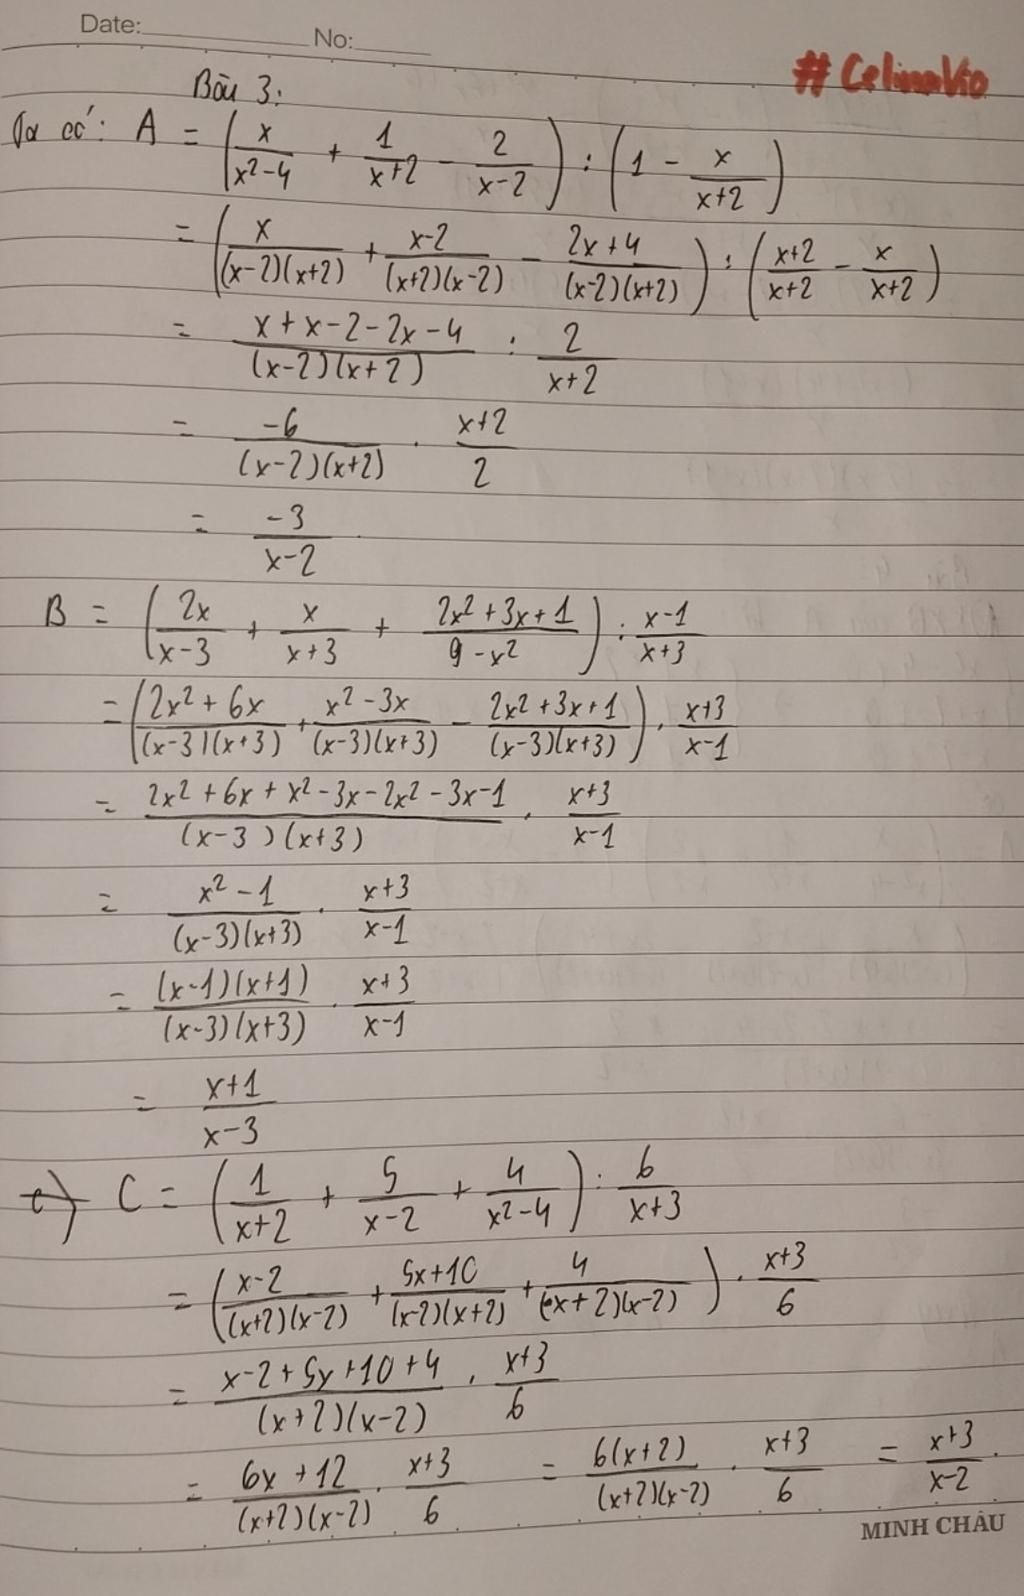 Date: No:
# CelinaVio
Bài 3:
Ta có: A = (x/(x²-4) + 1/(x+2) - 2/(x-2)) : (1 - x/(x+2))
= (x/((x-2)(x+2)) + (x-2)/((x+2)(x-2)) - (2x+4)/((x-2)(x+2))) : ((x+2)/(x+2) - x/(x+2))
= (x+x-2-2x-4)/((x-2)(x+2)) : 2/(x+2)
= -6/((x-2)(x+2)) . (x+2)/2
= -3/(x-2)
B = (2x/(x-3) + x/(x+3) + (2x²+3x+1)/(9-x²)) : (x-1)/(x+3)
= ((2x²+6x)/((x-3)(x+3)) + (x²-3x)/((x-3)(x+3)) - (2x²+3x+1)/((x-3)(x+3))) . (x+3)/(x-1)
= (2x²+6x+x²-3x-2x²-3x-1)/((x-3)(x+3)) . (x+3)/(x-1)
= (x²-1)/((x-3)(x+3)) . (x+3)/(x-1)
= ((x-1)(x+1))/((x-3)(x+3)) . (x+3)/(x-1)
= (x+1)/(x-3)
c) C = (1/(x+2) + 5/(x-2) + 4/(x²-4)) : 6/(x+3)
= ((x-2)/((x+2)(x-2)) + (5x+10)/((x-2)(x+2)) + 4/((x+2)(x-2))) . (x+3)/6
= (x-2+5x+10+4)/((x+2)(x-2)) . (x+3)/6
= (6x+12)/((x+2)(x-2)) . (x+3)/6 = (6(x+2))/((x+2)(x-2)) . (x+3)/6 = (x+3)/(x-2).
MINH CHÂU